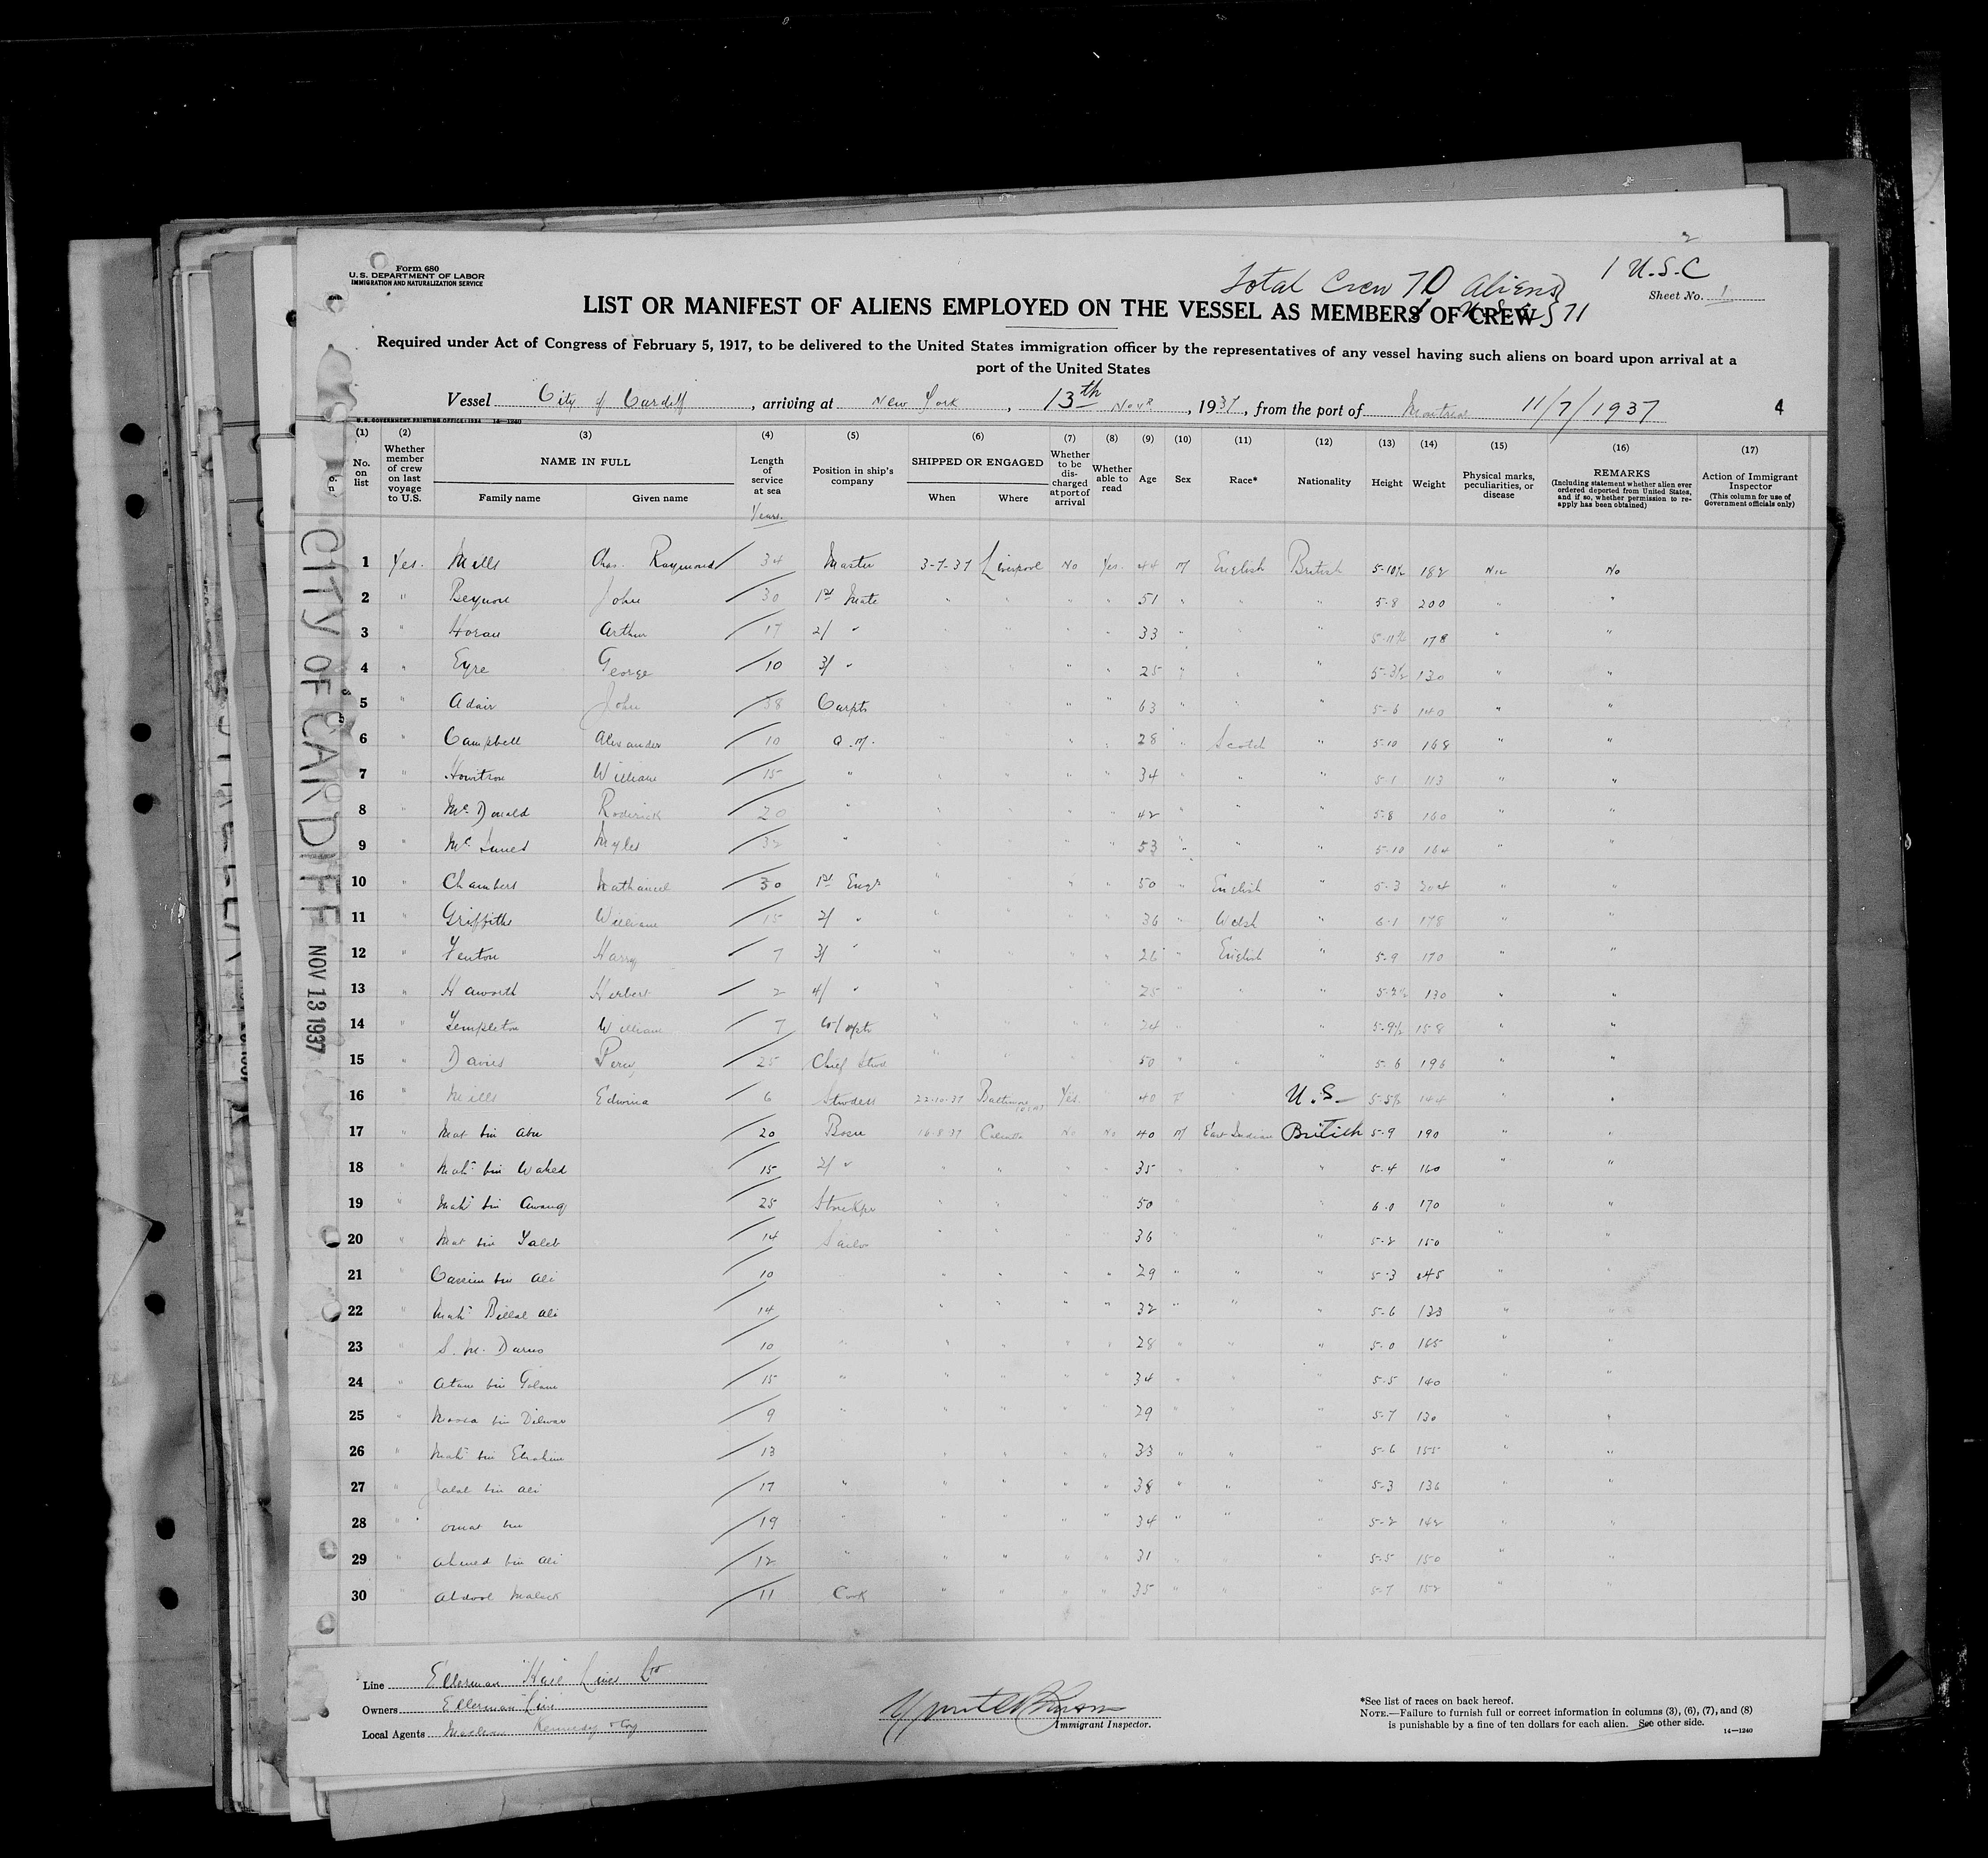 Form 680
U.S. DEPARTMENT OF LABOR
IMMIGRATION AND NATURALIZATION SERVICE
Total Crew 70 Aliens
71
1 U.S.C
Sheet No. 1
LIST OR MANIFEST OF ALIENS EMPLOYED ON THE VESSEL AS MEMBERS OF CREW
Required under Act of Congress of February 5, 1917, to be delivered to the United States immigration officer by the representatives of any vessel having such aliens on board upon arrival at a
port of the United States
Vessel City of Cardiff, arriving at New York, 13th Novr, 1937, from the port of Montreal 11/7/1937
4
U.S. GOVERNMENT PRINTING OFFICE: 1934 14—1240
(1) (2) (3) (4) (5) (6) (7) (8) (9) (10) (11) (12) (13) (14) (15) (16) (17)
No. on list
Whether member of crew on last voyage to U.S.
NAME IN FULL
Family name
Given name
Length of service at sea
Years.
Position in ship's company
SHIPPED OR ENGAGED
When
Where
Whether to be discharged at port of arrival
Whether able to read
Age
Sex
Race*
Nationality
Height
Weight
Physical marks, peculiarities, or disease
REMARKS
(Including statement whether alien ever ordered deported from United States, and if so, whether permission to reapply has been obtained)
Action of Immigrant Inspector
(This column for use of Government officials only)
1 Yes. Mills Chas. Raymond 34 Master 3-7-37 Liverpool No Yes. 44 M English British 5-10½ 182 No
2 " Beynon John 30 1st Mate " " " " 51 " " " 5-8 200 " "
3 " Horan Arthur 17 2/ " " " " " 33 " " " 5-11¼ 178 " "
4 " Eyre George 10 3/ " " " 25 " " " 5-3½ 130 " "
5 " Adair John 38 Carptr " " 63 " " " 5-6 140 " "
6 " Campbell Alexander 10 Q.M. " " 28 " Scotch " 5-10 168 " "
7 " William 15 " " " " " 34 " " " 5-1 113 " "
8 " McDonald Roderick 20 " " " " " 42 " " " 5-8 160 " "
9 " McInnes Myles 32 " " " " " 53 " " " 5-10 164 " "
10 " Chambers Nathaniel 30 1st Engr " " " " 50 " English " 5-3 204 " "
11 " Griffiths William 15 2/ " " " " " 36 " Welsh " 6-1 178 " "
12 " Fenton Harry 7 3/ " " " " " 26 " English " 5-9 170 " "
13 " Haworth Herbert 2 4/ " " " " 25 " " " 5-2½ 130 " "
14 " Templeton William 7 " " " " 24 " " 5-9½ 158 " "
15 " Davies Percy 25 Chief Stwd " " " 50 " " " 5-6 196 " "
16 " Mills Edwina 6 Stwdess 22-10-37 Baltimore Yes. " 40 F " U.S. 5-5½ 144 " "
17 " Mat bin Abu 20 Bosn 16-8-37 Calcutta No No 40 M East Indian British 5-9 190 " "
18 " Mah bin Waked 15 2/ " " " " " 35 " " " 5-4 160 " "
19 " Mah bin Awang 25 Storekpr " " " " 50 " " " 6-0 170 " "
20 " Mat bin Taleb 14 Sailor " " " " 36 " " " 5-2 150 " "
21 " Cassim bin Ali 10 " " " " 29 " " " 5-3 145 " "
22 " Mah Billal Ali 14 " " " " 32 " " " 5-6 133 " "
23 " S. M. 10 " " " " " 28 " " " 5-0 165 " "
24 " Atam bin 15 " " " " " 34 " " " 5-5 140 " "
25 " Moosa bin Dilwar 9 " " " " " 29 " " " 5-7 130 " "
26 " Mah bin Ebrahim 13 " " " " 33 " " " 5-6 155 " "
27 " Jalal bin Ali 17 " " " " " 38 " " " 5-3 136 " "
28 " Omar bin 19 " " " " " 34 " " " 5-2 142 " "
29 " Ahmed bin Ali 12 " " " " " 31 " " 5-5 150 " "
30 " Abdool Maleck 11 Cook " " " " 35 " " " 5-7 152 " "
CITY OF CARDIFF NOV 13 1937
Line Ellerman Lines Ltd
Owners Ellerman
Local Agents Kennedy & Coy
Immigrant Inspector.
*See list of races on back hereof.
NOTE.—Failure to furnish full or correct information in columns (3), (6), (7), and (8)
is punishable by a fine of ten dollars for each alien. See other side.
14—1240